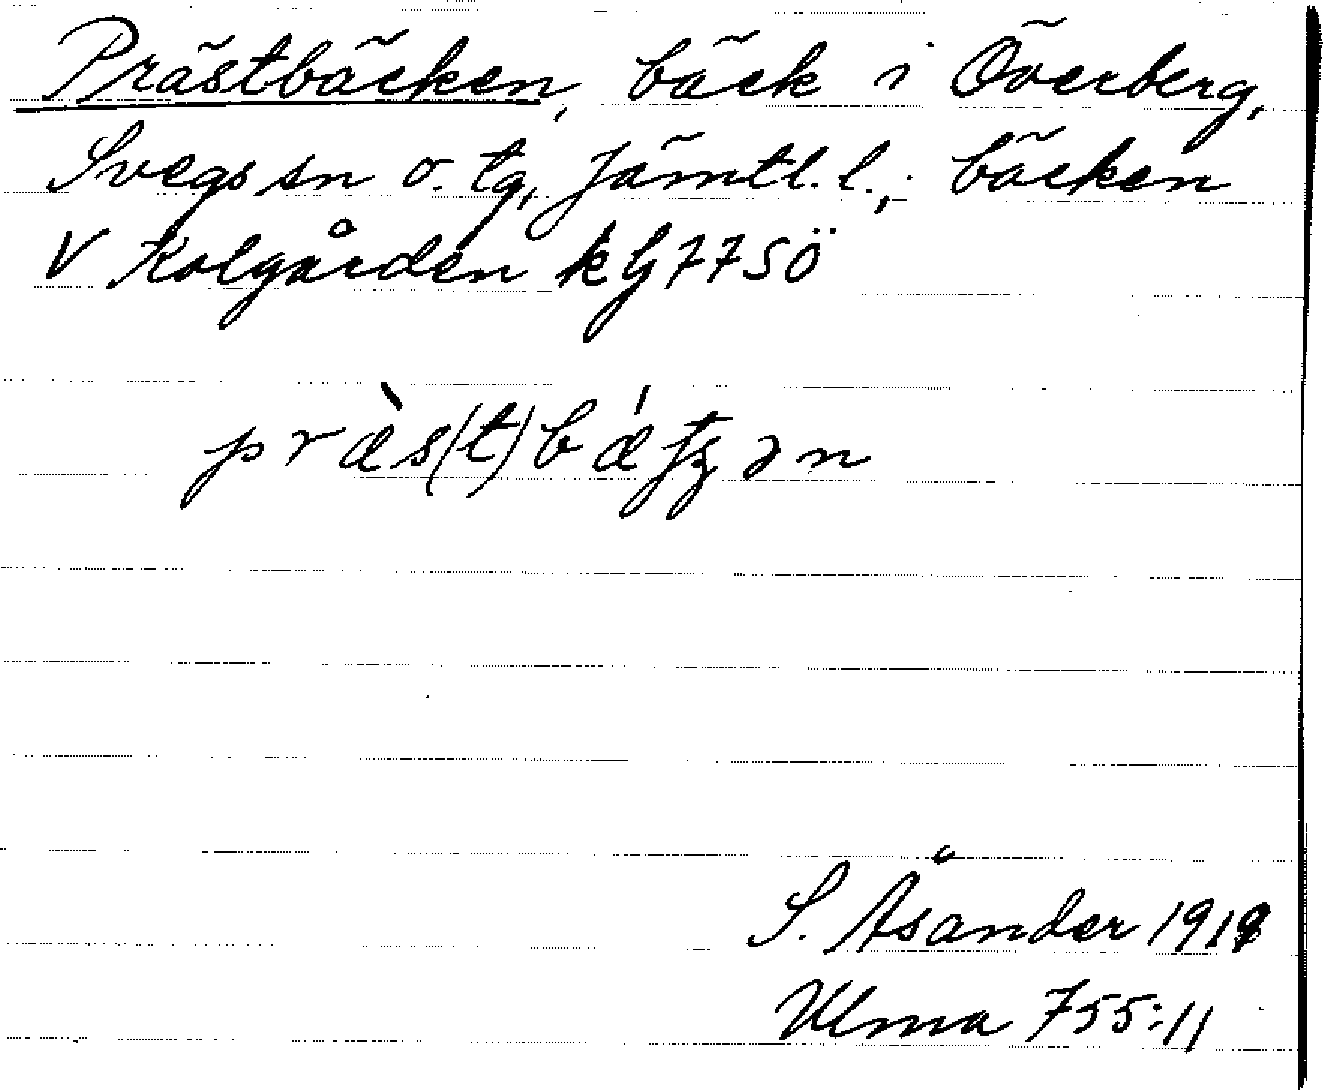 Prästbäcken, bäck i Överberg,
Svegs sn o. tg, Jämtl. l.; bäcken
V Kolgården kG 77 SÖ
præ̀s(t)bǽʈʂən
S. Åsander 1919
Ulma 755:11